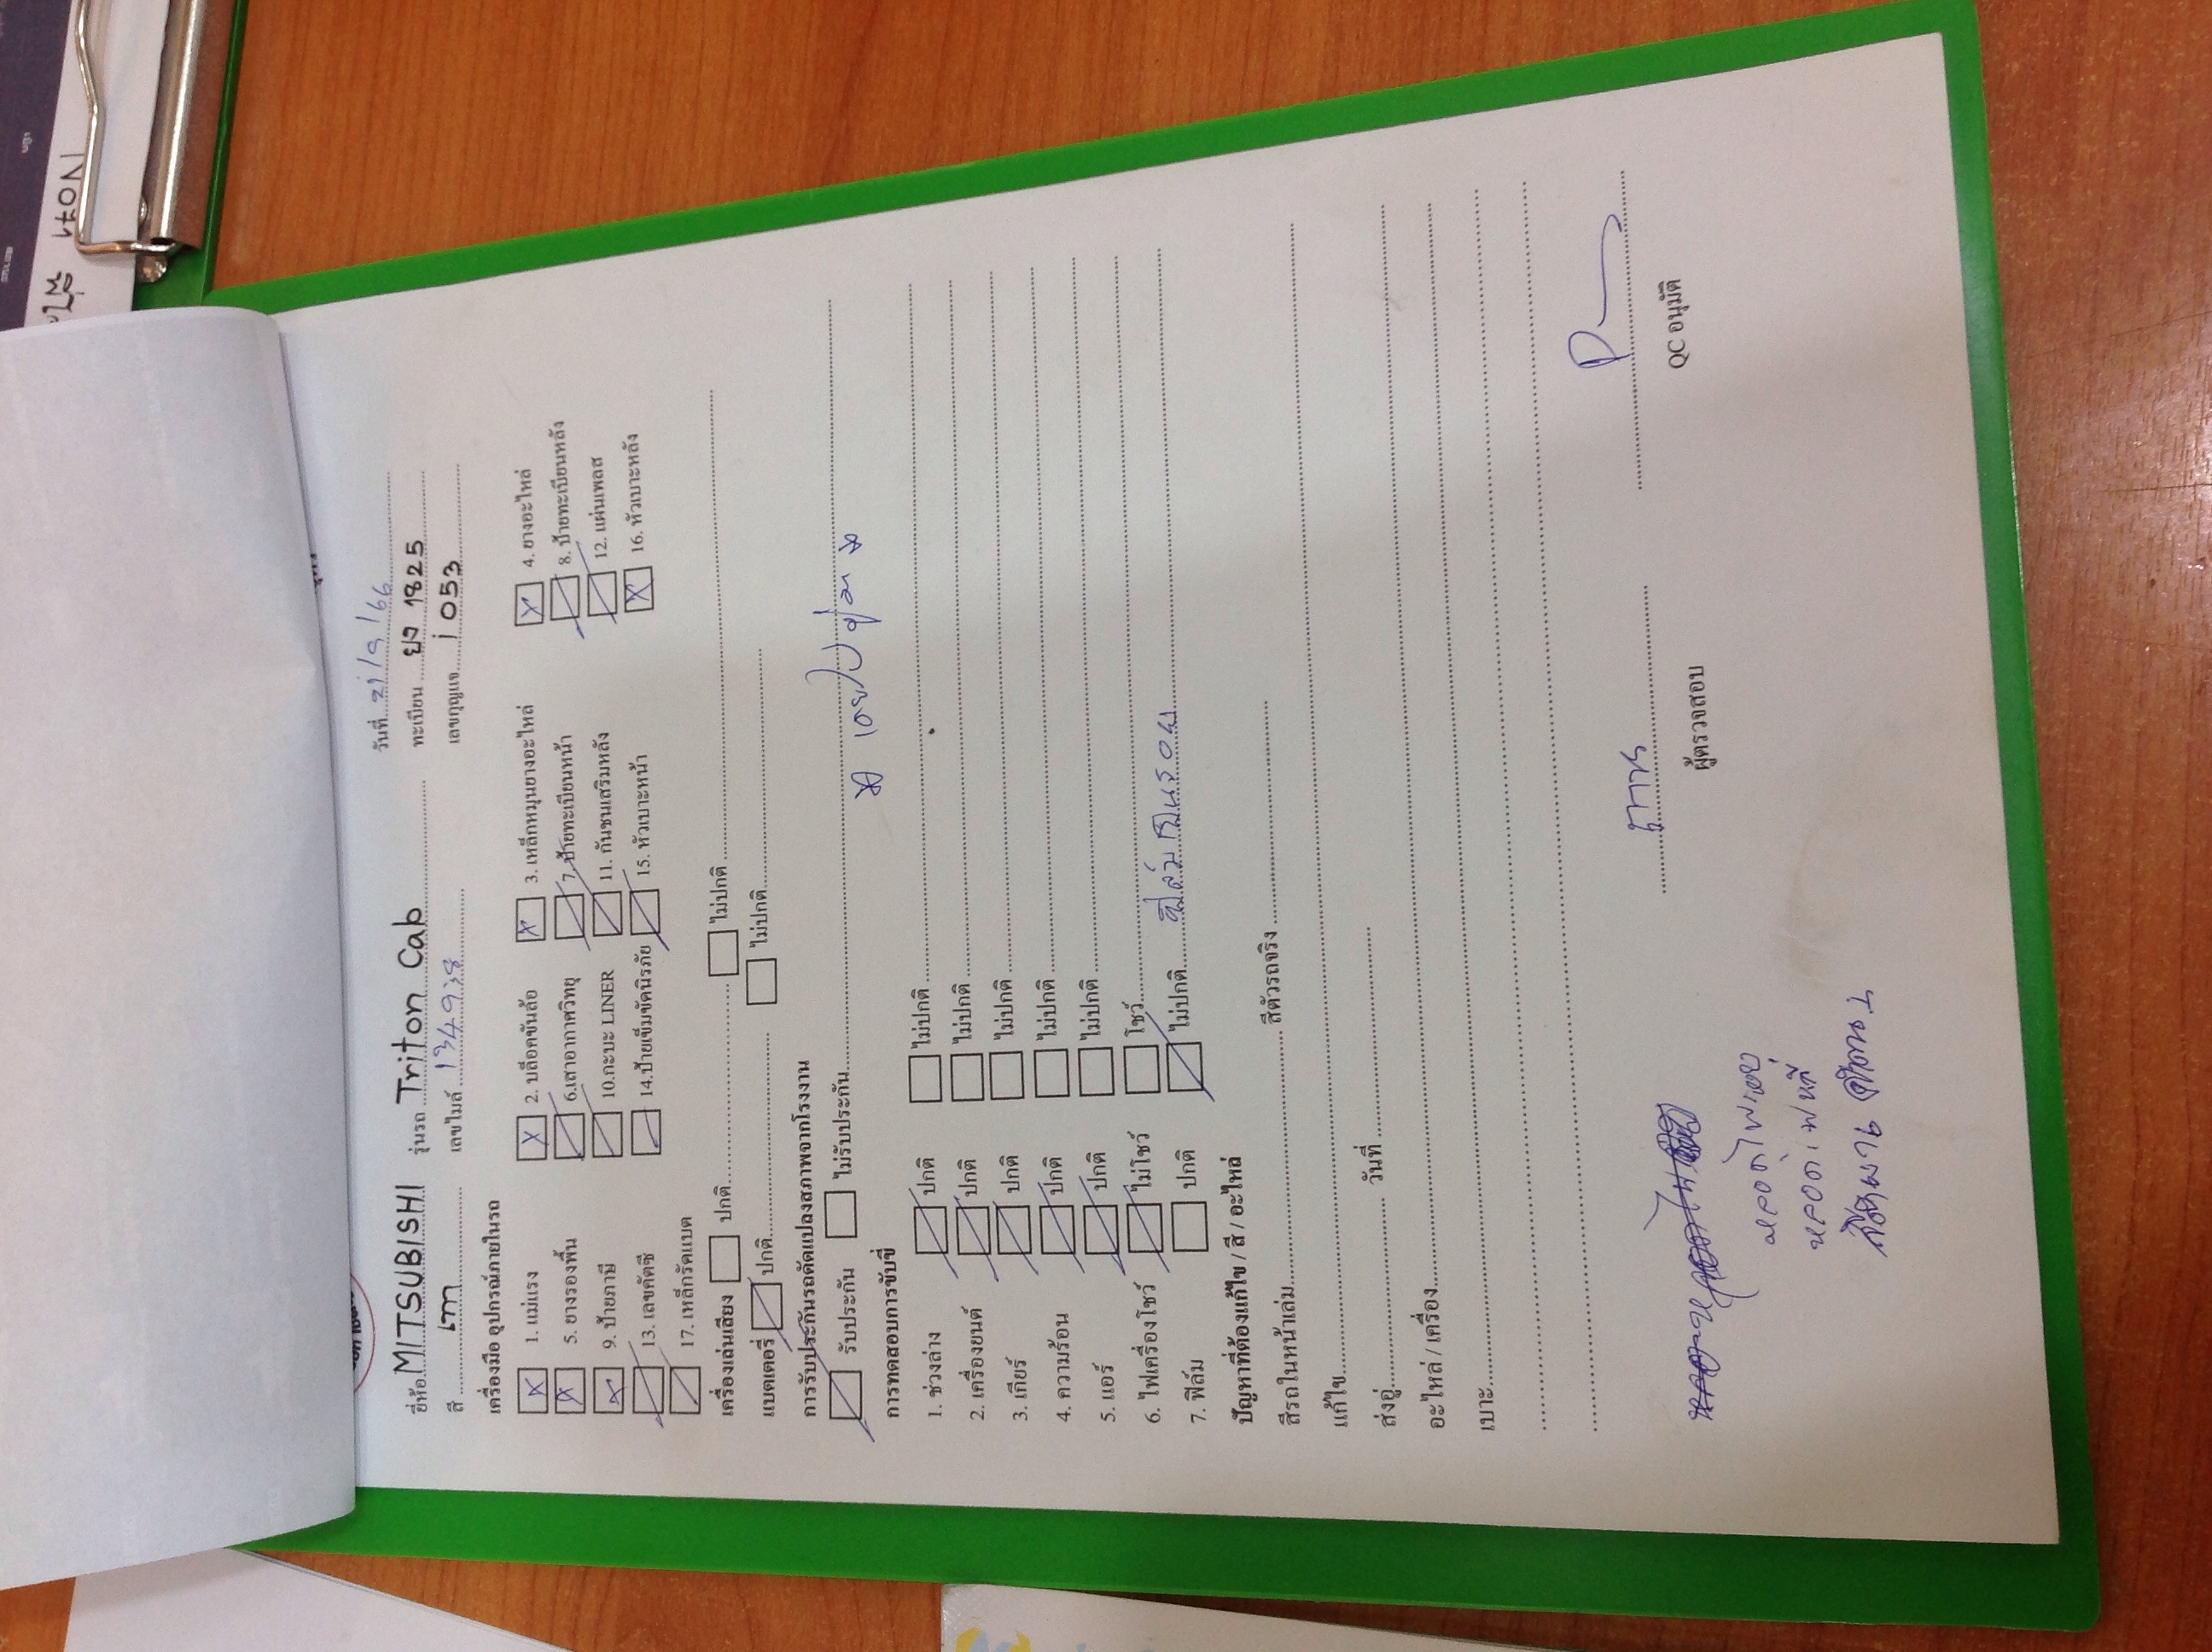 ยี่ห้อ MITSUBISHI รุ่นรถ Triton Cab วันที่ 21/9/66
สี เทา เลขไมล์ 134938 ทะเบียน ยง 1825
เลขกุญแจ 1053
เครื่องมือ อุปกรณ์ภายในรถ
1. แม่แรง 2. บล็อคขันล้อ 3. เหล็กหมุนยางอะไหล่ 4. ยางอะไหล่
5. ยางรองพื้น 6.เสาอากาศวิทยุ 7.ป้ายทะเบียนหน้า 8. ป้ายทะเบียนหลัง
9. ป้ายภาษี 10.กะบะ LINER 11. กันชนเสริมหลัง 12. แผ่นเพลส
13. เลขคัตซี 14.ป้ายเข็มขัดนิรภัย 15. หัวเบาะหน้า 16. หัวเบาะหลัง
17. เหล็กรัดแบต
เครื่องเล่นเสียง ปกติ ไม่ปกติ
แบตเตอรี่ ปกติ ไม่ปกติ
การรับประกันรถดัดแปลงสภาพจากโรงงาน
รับประกัน ไม่รับประกัน
เคยไปซ่อม
การทดสอบการขับขี่
1. ช่วงล่าง ปกติ ไม่ปกติ
2. เครื่องยนต์ ปกติ ไม่ปกติ
3. เกียร์ ปกติ ไม่ปกติ
4. ความร้อน ปกติ ไม่ปกติ
5. แอร์ ปกติ ไม่ปกติ
6. ไฟเครื่องโชว์ ไม่โชว์ โชว์
7. ฟิล์ม ปกติ ไม่ปกติ ฟิล์มเป็นรอย
ปัญหาที่ต้องแก้ไข / สี / อะไหล่
สีรถในหน้าเล่ม สีตัวรถจริง
แก้ไข
ส่งอู่ วันที่
อะไหล่ / เครื่อง
เบาะ
ผู้ตรวจสอบ QC อนุมัติ
N071